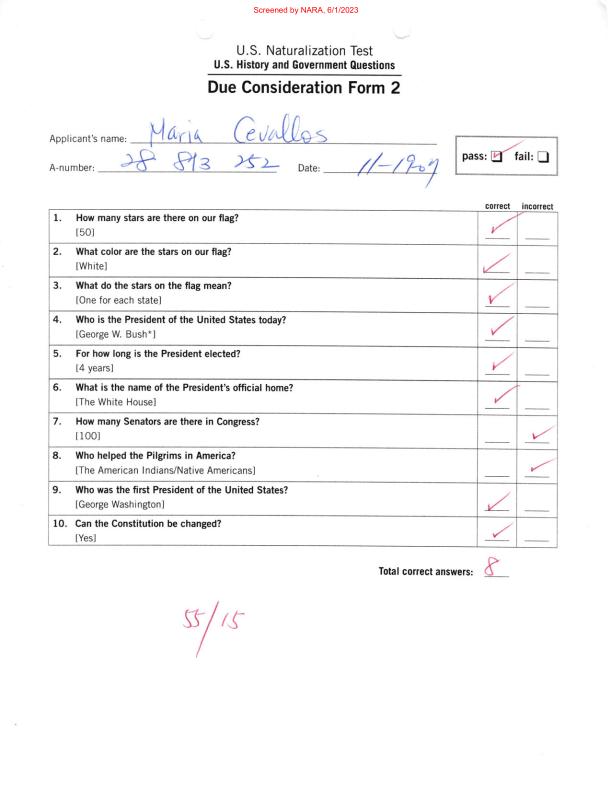 Screened by NARA, 6/1/2023
U.S. Naturalization Test
U.S. History and Government Questions
Due Consideration Form 2
Applicant's name: Maria Cevallos
A-number: 28 813 252 Date: 11-1907
pass: fail:
correct incorrect
1. How many stars are there on our flag?
[50]
2. What color are the stars on our flag?
[White]
3. What do the stars on the flag mean?
[One for each state]
4. Who is the President of the United States today?
[George W. Bush*]
5. For how long is the President elected?
[4 years]
6. What is the name of the President's official home?
[The White House]
7. How many Senators are there in Congress?
[100]
8. Who helped the Pilgrims in America?
[The American Indians/Native Americans]
9. Who was the first President of the United States?
[George Washington]
10. Can the Constitution be changed?
[Yes]
Total correct answers: 8
55/15